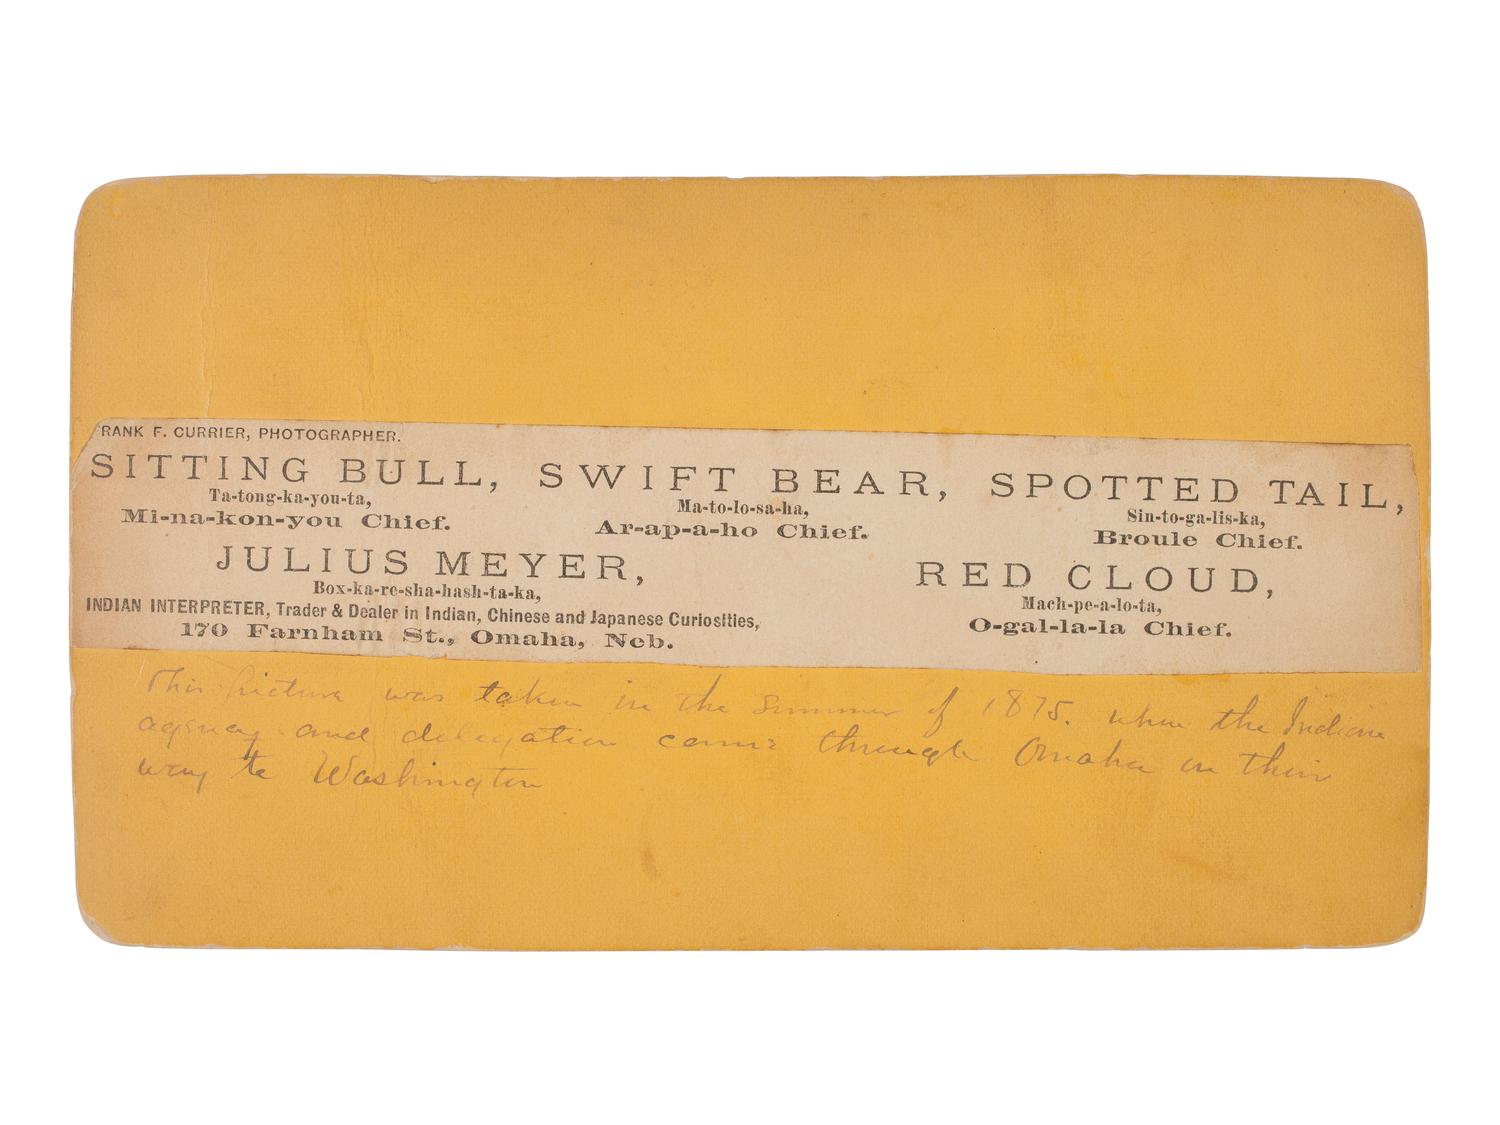 RANK F. CURRIER, PHOTOGRAPHER.
SITTING BULL, SWIFT BEAR, SPOTTED TAIL,
Ta-tong-ka-you-ta, Ma-to-lo-sa-ha, Sin-to-ga-lis-ka,
Mi-na-kon-you Chief. Ar-ap-a-ho Chief. Broule Chief.
JULIUS MEYER, RED CLOUD,
Box-ka-re-sha-hash-ta-ka, Mach-pe-a-lo-ta,
INDIAN INTERPRETER, Trader & Dealer in Indian, Chinese and Japanese Curiosities, O-gal-la-la Chief.
170 Farnham St., Omaha, Neb.
This picture was taken in the summer of 1875. when the Indian
agency and delegation came through Omaha on their
way to Washington